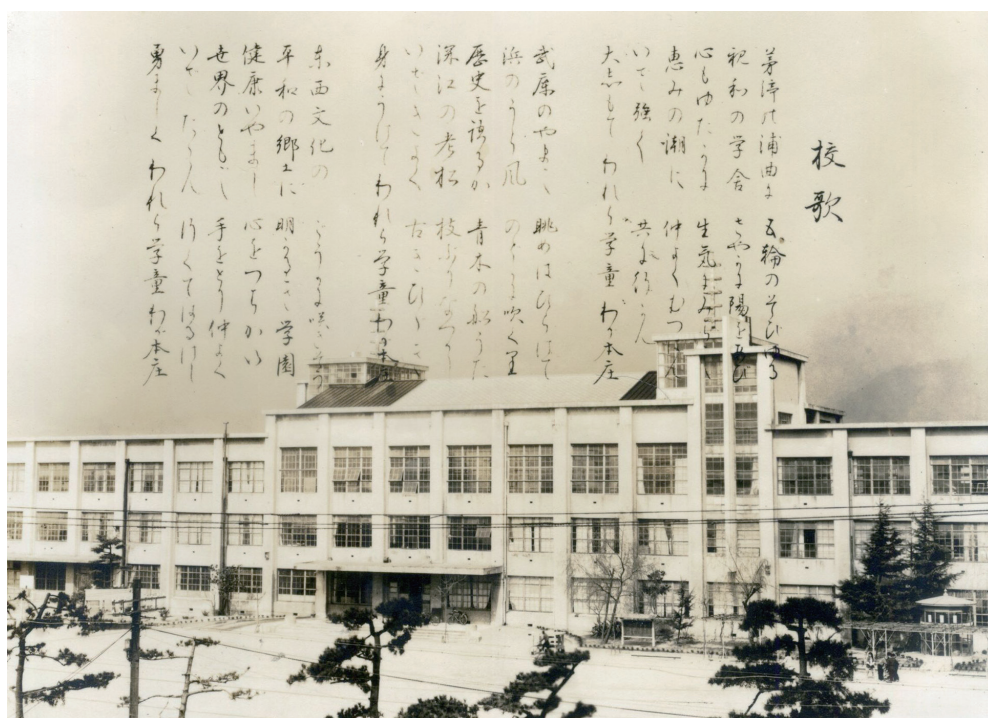 校歌
茅渟の浦曲に 五輪のそびゆる
昭和の学舎 さやかな陽を浴び
心もゆたかに 生気にみち
恵みの潮に 仲よくむつ
いで強く 共に行かん
大志もて われら学童 わが本庄
武庫のやま 眺めはひらけて
浜のうら風 のどかに吹く里
歴史を語るか 青木の船うた
深江の老松 枝ぶりなつかし
いざきよく 古きひびき
身にうけて われら学童 わが本庄
東西文化の 咲きそう
平和の郷土に 明かるき学園
健康いやまし 心をつちかい
世界のとも 手をとり仲よく
いで 行くてはるけし
勇ましく われら学童 わが本庄